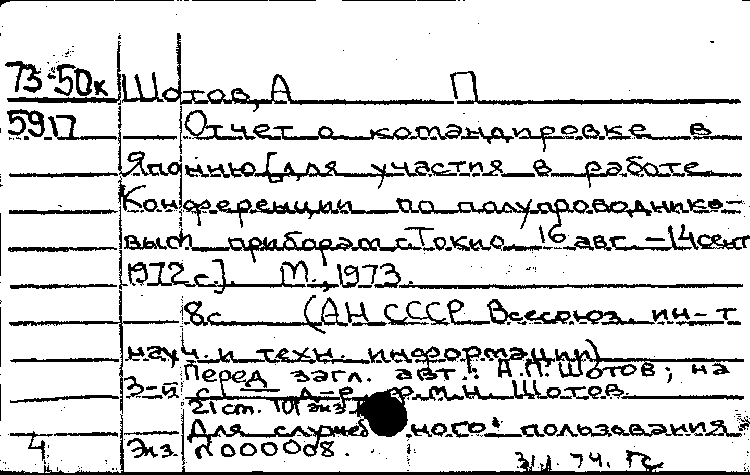 73-50к Шотов, А П
5917 Отчет о командировке в
Японию [для участия в работе
Конференции по полупроводнико-
вым приборам г. Токио 16 авг. – 14 сент
1972 г.]. М., 1973.
8 с (АН СССР Всесоюз. ин-т
науч. и техн. информации)
Перед загл. авт.: А.П. Шотов; на
3-й с. — д-р ф.м.н. Шотов.
21 см. 10 экз.
Для служебного пользования
4 Экз. N 000008.
74.